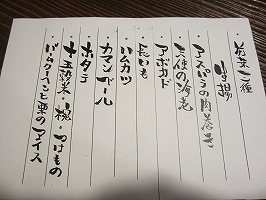 ・前菜二種
・串揚
・アスパラの肉巻き
・天使の海老
・アボカド
・長いも
・ハムカツ
・カマンベール
・ホタテ
・十五穀米・椀・つけもの
・バームクーヘンと栗のアイス